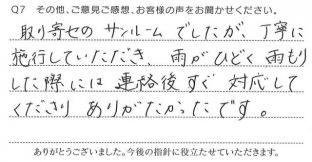 Q7 その他、ご意見ご感想、お客様の声をお聞かせください。
取り寄せの サンルーム でしたが、丁寧に
施行していただき、雨がひどく 雨もり
した際には 連絡後すぐ 対応して
くださり ありがたかったです。
ありがとうございました。今後の指針に役立たせていただきます。